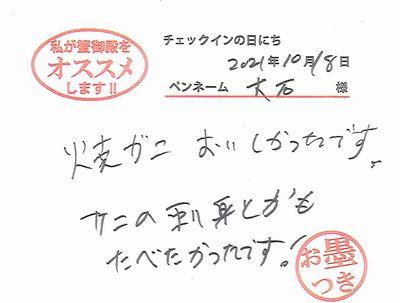 私が蟹御殿を
オススメ
します!!
チェックインの日にち
2021年10月18日
ペンネーム 大石 様
焼ガニ おいしかったです。
カニの刺身とかも
たべたかったです!
お墨
つき